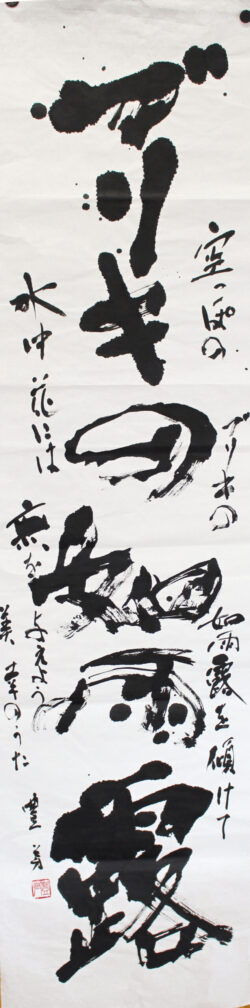 ブリキの如雨露
空っぽの
ブリキの
如雨露を傾けて
水中花には
無を与えよう
美幸のうた
豊美